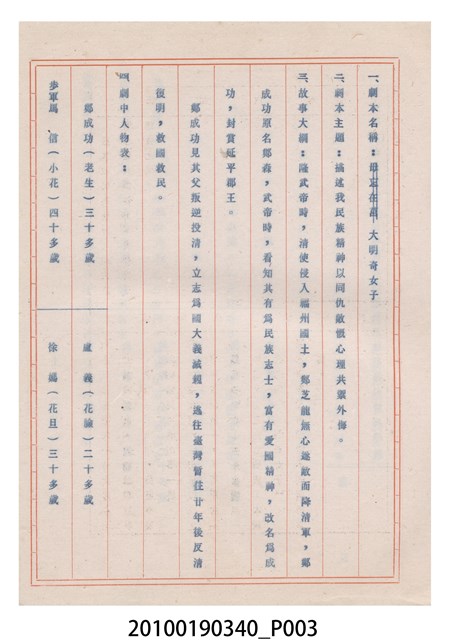 一、劇本名稱：毋忘在莒 大明奇女子
二、劇本主題：描述我民族精神以同仇敵慨心理共禦外侮。
三、故事大綱：隆武帝時，清使侵入福州國土，鄭芝龍無心逐敵而降清軍，鄭
成功原名鄭森，武帝時，看知其有為民族志士，富有愛國精神，改名為成
功，封賞延平郡王。
鄭成功見其父叛逆投清，立志為國大義滅親，逃往臺灣暫住廿年後反清
復明，救國救民。
四、劇中人物表：
鄭成功（老生）三十多歲
盧 義（花臉）二十多歲
步軍馬 信（小花）四十多歲
徐 鳳（花旦）三十多歲
20100190340_P003